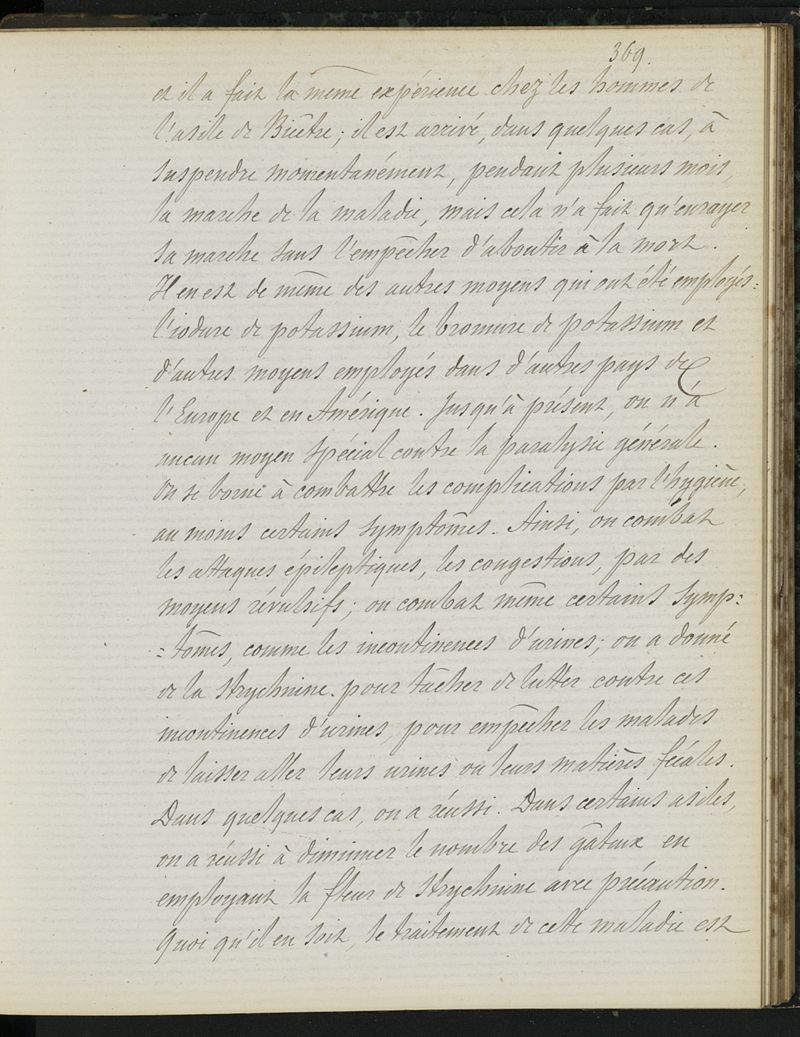 369.
et il a fait la même expérience chez les hommes de
l'asile de Bicêtre; il est arrivé, dans quelques cas, à
suspendre momentanément, pendant plusieurs mois,
la marche de la maladie, mais cela n'a fait qu'enrayer
sa marche sans l'empêcher d'aboutir à la mort.
Il en est de même des autres moyens qui ont été employés:
l'iodure de potassium, le bromure de potassium et
d'autres moyens employés dans d'autres pays de
l'Europe et en Amérique. Jusqu'à présent, on n'a
aucun moyen spécial contre la paralysie générale.
On se borne à combattre les complications par l'hygiène,
au moins certains symptômes. Ainsi, on combat
les attaques épileptiques, les congestions, par des
moyens révulsifs; on combat même certains symp=
=tômes, comme les incontinences d'urines; on a donné
de la strychnine pour tâcher de lutter contre ces
incontinences d'urines, pour empêcher les malades
de laisser aller leurs urines ou leurs matières fécales.
Dans quelques cas, on a réussi. Dans certains asiles,
on a réussi à diminuer le nombre des gâteux en
employant la fleur de strychnine avec précaution.
Quoi qu'il en soit, le traitement de cette maladie est